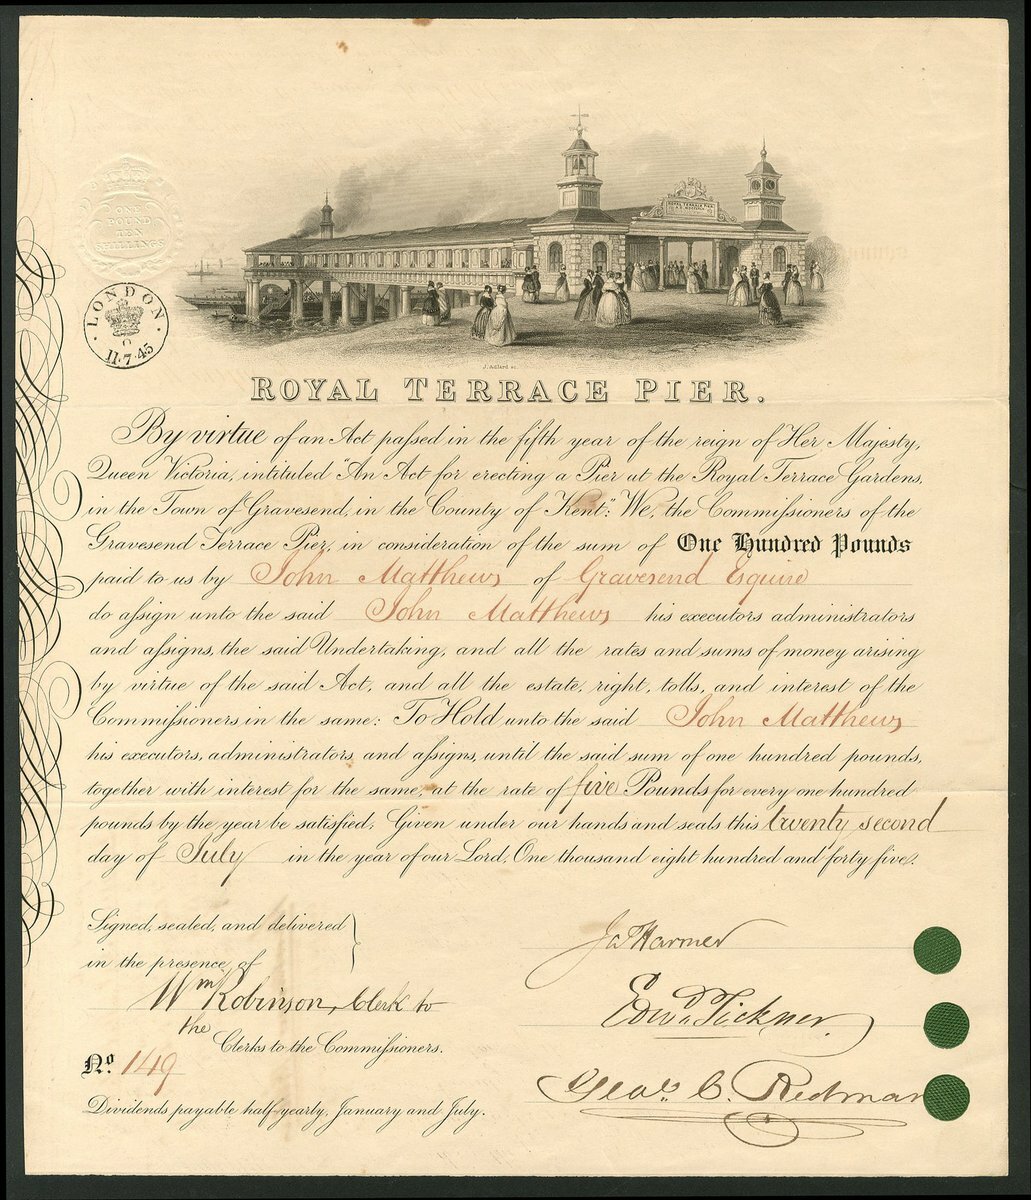 ONE
POUND
TEN
SHILLINGS
LONDON
11·7·45
ROYAL TERRACE PIER
J. Adlard sc.
ROYAL TERRACE PIER.
By virtue of an Act passed in the fifth year of the reign of Her Majesty,
Queen Victoria, intituled "An Act for erecting a Pier at the Royal Terrace Gardens,
in the Town of Gravesend, in the County of Kent": We, the Commissioners of the
Gravesend Terrace Pier, in consideration of the sum of One Hundred Pounds
paid to us by John Matthews of Gravesend Esquire
do assign unto the said John Matthews his executors administrators
and assigns, the said Undertaking, and all the rates and sums of money arising
by virtue of the said Act, and all the estate, right, tolls, and interest of the
Commissioners in the same: To Hold unto the said John Matthews
his executors, administrators, and assigns, until the said sum of one hundred pounds,
together with interest for the same, at the rate of five Pounds for every one hundred
pounds by the year be satisfied; Given under our hands and seals this twenty second
day of July in the year of our Lord, One thousand eight hundred and forty five.
Signed, sealed, and delivered
in the presence of
Wm Robinson, Clerk to
the Clerks to the Commissioners.
Jas Harmer
Edwd Tickner
Geo. C. Redman
No. 149
Dividends payable half-yearly, January and July.